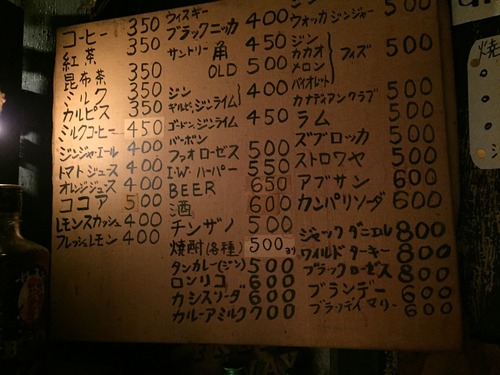 コーヒー 350
紅茶 350
昆布茶 350
ミルク 350
カルピス 350
ミルクコーヒー 450
ジンジャエール 400
トマトジュース 400
オレンジジュース 400
ココア 500
レモンスカッシュ 400
フレッシュレモン 400
ウィスキー
ブラックニッカ 400
サントリー 角 450
OLD 500
ジン
ギルビー、ジンライム 400
ゴードン、ジンライム 450
バーボン
フォアローゼス 500
I・W・ハーパー 550
BEER 650
酒 600
チンザノ 500
焼酎(各種) 500ヨリ
タンカレー(ジン) 500
ロンリコ 600
カシスソーダ 600
カルーアミルク 700
ウォッカ ジンジャー 500
ジン
カカオ
メロン
バイオレット
フィズ 500
カナディアンクラブ 500
ラム 500
ズブロッカ 500
ストロワヤ 500
アブサン 600
カンパリソーダ 600
ジャック ダニエル 800
ワイルド ターキー 800
ブラック ローゼス 800
ブランデー 600
ブラッディ マリー 600
焼